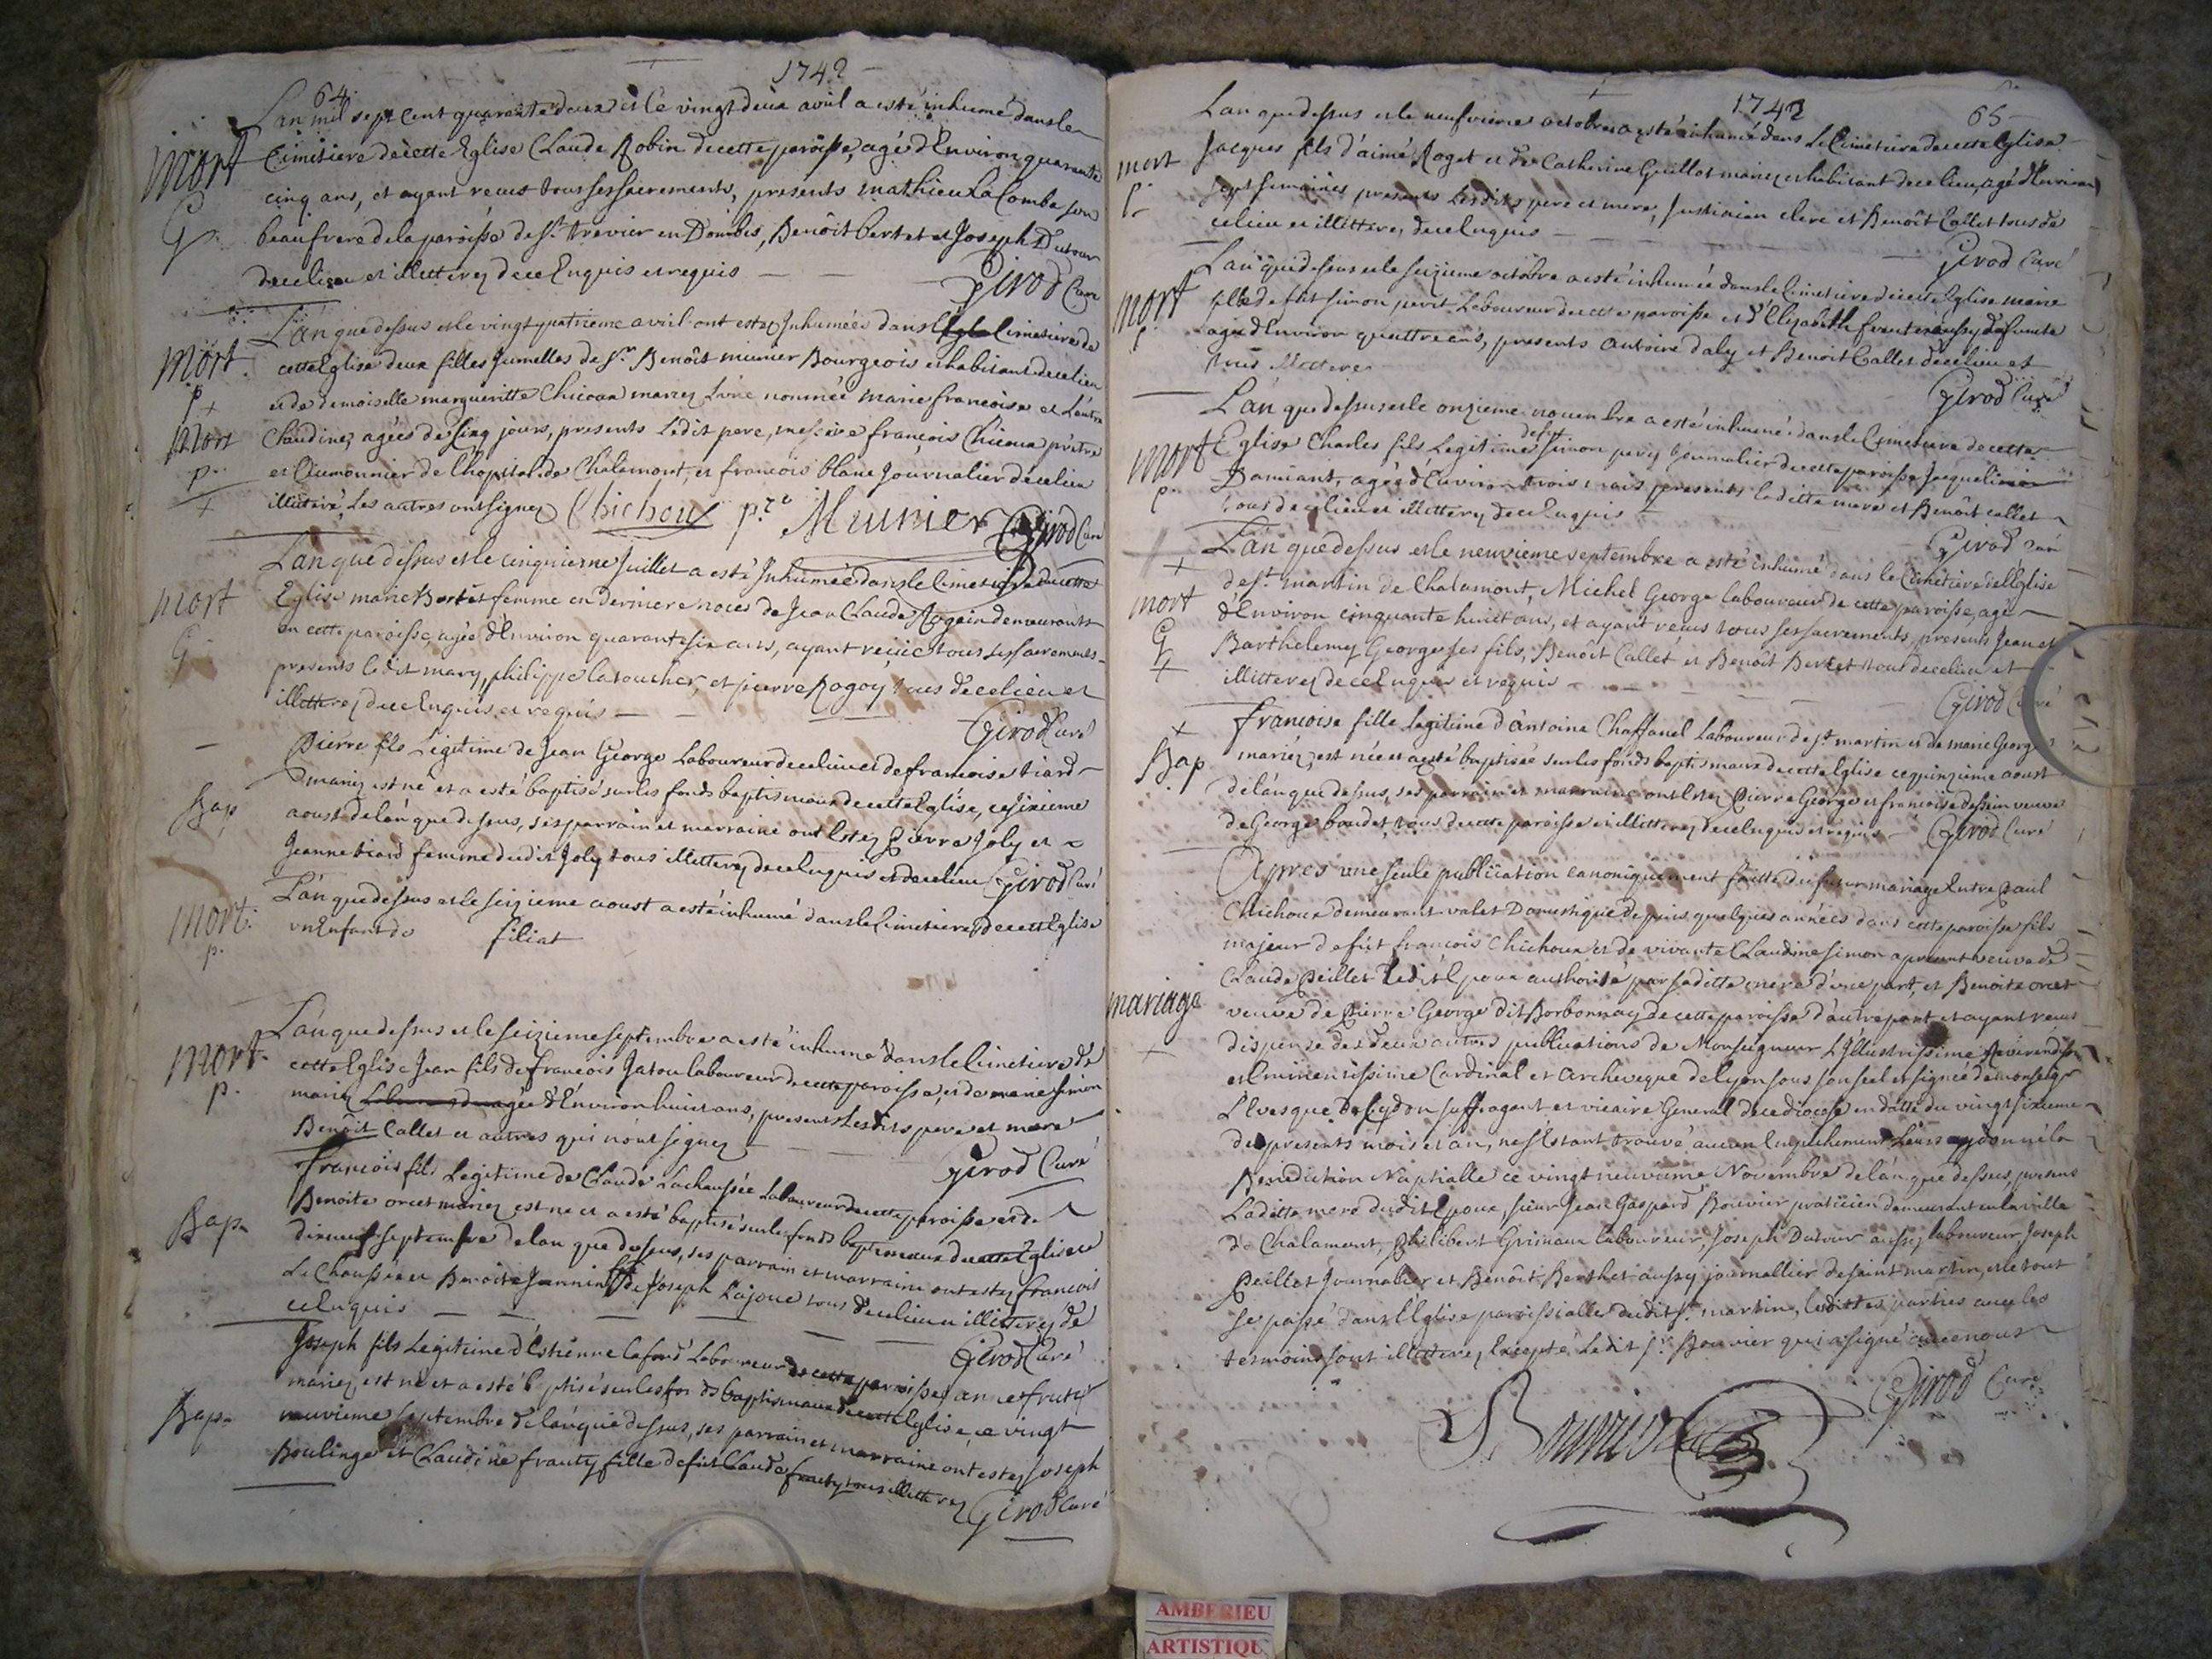 1742
64.
L'an mil sept cent quarante deux et le vingt deux avril a esté inhumé dans le
mort
Cimetiere de cette Eglise Claude Robin de cette paroisse, agé d'Environ quarante
cinq ans, et ayant receus tous ses sacrements, presents mathieu La Combe son
G.
beaufrere de la paroisse de st. trevier en Dombes, Benoît bertet et Joseph Dutour
de ce lieu et illetterez de ce Enquis et requis
Girod Curé
L'an que dessus et le vingt quatrieme avril ont estez Inhumées dans le Cimetiere de
mort.
cette Eglise deux filles Jumelles de sr. Benoît meunier Bourgeois et habitant de ce lieu
p.
et de demoiselle margueritte Chicoux mariez Lune nommée marie francoise et L'autre
+
mort
Claudine, agées de Cinq jours, presents Ledit pere, messire françois Chicoux prêtre
p.
et Aumonnier de l'hopital de Chalamont, et francois blanc Journalier de ce lieu
+
illiteré, Les autres ont signez Chichoux ptre Meunier Girod Curé
L'an que dessus et le cinquieme Juillet a esté Inhumée dans le Cimetiere de cette
mort
Eglise marie Bertet femme en derniere noces de Jean Claude Rogein demeurants
G
en cette paroisse, agée d'Environ quarante six ans, ayant receue tous ses sacrements
presents le dit mary, philippe latoucher, et pierre Rogoy tous de ce lieu et
illetterez de ce Enquis et requis
Girod Curé
Pierre fils Legitime de Jean George Laboureur de ce lieu et de francoise biard
Bap
mariez est né et a esté baptisé sur les fonds baptismaux de cette Eglise, ce sixieme
aoust de l'an que dessus, ses parrain et marraine ont Estez Pierre Joly et
Jeanne biard femme dudit Joly tous illetterez de ce Enquis et de ce lieu Girod Curé
L'an que dessus et le seizieme aoust a esté inhumé dans le Cimetiere de cette Eglise
mort.
p.
un Enfant de filiat
L'an que dessus et le seizieme septembre a esté inhumé dans le Cimetiere de
mort.
cette Eglise Jean fils de francois Jatou laboureur de cette paroisse, et de marie simon
p.
mariez agé d'Environ huict ans, presents Les dits pere et mere
Benoît Callet et autres qui n'ont signez
Girod Curé
francois fils Legitime de Claude Lachaussée Laboureur de cette paroisse et de
Bap.
Benoite orcet mariez est né et a esté baptisé sur les fonds baptismaux de cette Eglise ce
dixneuf septembre de lan que dessus, ses parrain et marraine ont estez francois
La Chaussée et Benoite Jannin de Joseph Lajoue tous de ce lieu et illitterez de
ce Enquis
Girod Curé
Joseph fils Legitime d'Estienne Lafond Laboureur de cette paroisse, anne fruty
Bap.
mariez, est né et a esté baptisé sur les fonds baptismaux de cette Eglise, ce vingt
neuvieme septembre de l'an que dessus, ses parrain et marraine ont estez Joseph
Boulinge et Claudine frauty fille de fût Claude frauty tous illitterez Girod Curé
1742
65
L'an que dessus et le neufvieme octobre a esté inhumé dans Le Cimetiere de cette Eglise
mort
Jacques fils d'aimé Roget et de Catherine Guillot mariez et habitant de ce lieu, agé d'Environ
p.
sept semaines presents Lesdits pere et mere, Justinien clerc et Benoît Callet tous de
ce lieu et illitterez de ce Enquis
Girod Curé
L'an que dessus et le seizieme octobre a esté inhumée dans le Cimetiere de cette Eglise marie
mort
fille de fût simon pery Laboureur de cette paroisse et d'Elizabeth aussy defuncte
p.
agée d'Environ quattre ans, presents antoine daly et Benoît Callet de ce lieu et
tous illetterez
Girod Curé
L'an que dessus et le onzieme novembre a esté inhumé dans le Cimetiere de cette
mort
Eglise Charles fils Legitime defut simon pery Journalier de cette paroisse Jacqueline
p.
Damiant, agée d'Environ trois mois, presents laditte mere et Benoît callet
tous de ce lieu et illitterez de ce Enquis
Girod Curé
L'an que dessus et le neuvieme septembre a esté inhumé dans le Cimetiere de l'Eglise
+
mort
de st. martin de Chalamont, Michel George laboureur de cette paroisse, agé
G
d'Environ cinquante huict ans, et ayant receus tous ses sacrements, presents Jean et
Barthelemy George ses fils, Benoît Callet et Benoît Bertet tous de ce lieu et
+
illitterez de ce Enquis et requis
Girod Curé
+
francoise fille legitime d'antoine Chaffanel Laboureur de st. martin et de marie George
Bap
mariez, est née et a esté baptisée sur les fonds baptismaux de cette Eglise ce quinzieme aoust
de l'an que dessus, ses parrain et marraine ont Estez Pierre George et francoise dessein veuve
de George boudet, tous de cette paroisse et illitterez de ce Enquis et requis Girod Curé
Apres une seule publication canoniquement faitte du futur mariage Entre Paul
Chichoux demeurant valet Domestique depuis quelques années dans cette paroisse fils
majeur de fût francois Chichoux et de vivante Claudine simon a present veuve de
Claude Peillet Ledit Epoux authorisé par saditte mere d'une part, et Benoite orcet
mariage
veuve de Pierre George dit Borbonnay de cette paroisse d'autre part et ayant receus
+
dispense des deux autres publications de Monseigneur L'Illustrissime Reverendissime
et Eminentissime Cardinal et archeveque de lyon sous son seel et signée de monseigr
L'Evesque De Sydon suffragant et vicaire General de ce diocese en datte du vingt sixieme
du presents mois et an, ne s'Estant trouvé aucun Empêchement Leurs ay donné la
Benediction Nuptialle ce vingt neuvieme Novembre de l'an que dessus, presents
Laditte mere dudit Epoux, sieur Jean Gaspard Bouvier praticien demeurant en la ville
de Chalamont, Philibert Grimaux laboureur, Joseph Dutour aussy laboureur Joseph
Peillet Journalier et Benoît Berthet aussy journallier de saint martin, et le tout
se passé dans l'Eglise paroissialle dudit st. martin, lesdittes parties avec les
tesmoins sont illitterez Excepté Ledit sr. Bouvier qui a signé avec nous
Girod Curé
Bouvier
AMBERIEU
ARTISTIQU